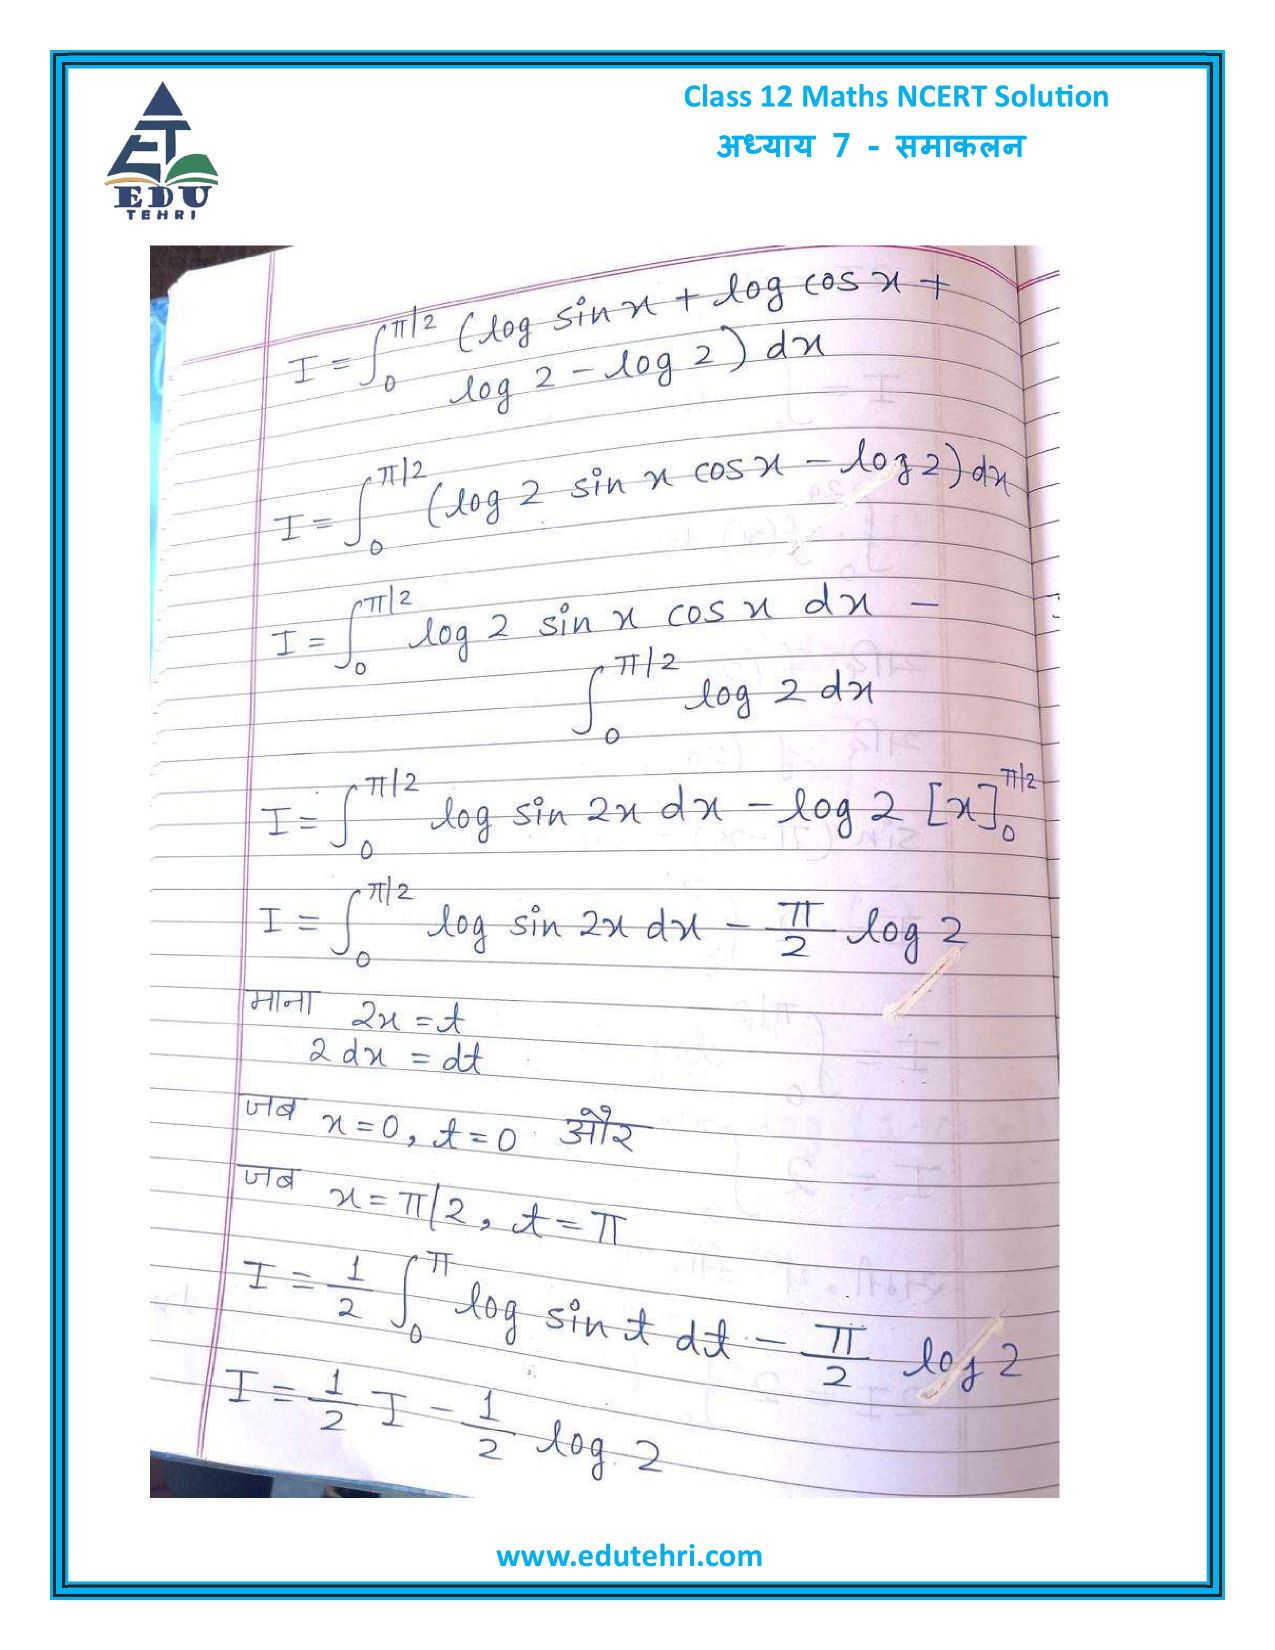 Class 12 Maths NCERT Solution
अध्याय 7 - समाकलन
EDU
TEHRI
I = ∫₀^π/2 (log sin x + log cos x +
log 2 - log 2) dx
I = ∫₀^π/2 (log 2 sin x cos x - log 2) dx
I = ∫₀^π/2 log 2 sin x cos x dx -
∫₀^π/2 log 2 dx
I = ∫₀^π/2 log sin 2x dx - log 2 [x]₀^π/2
I = ∫₀^π/2 log sin 2x dx - π/2 log 2
माना 2x = t
2 dx = dt
जब x = 0, t = 0 और
जब x = π/2, t = π
I = 1/2 ∫₀^π log sin t dt - π/2 log 2
I = 1/2 I - 1/2 log 2
www.edutehri.com